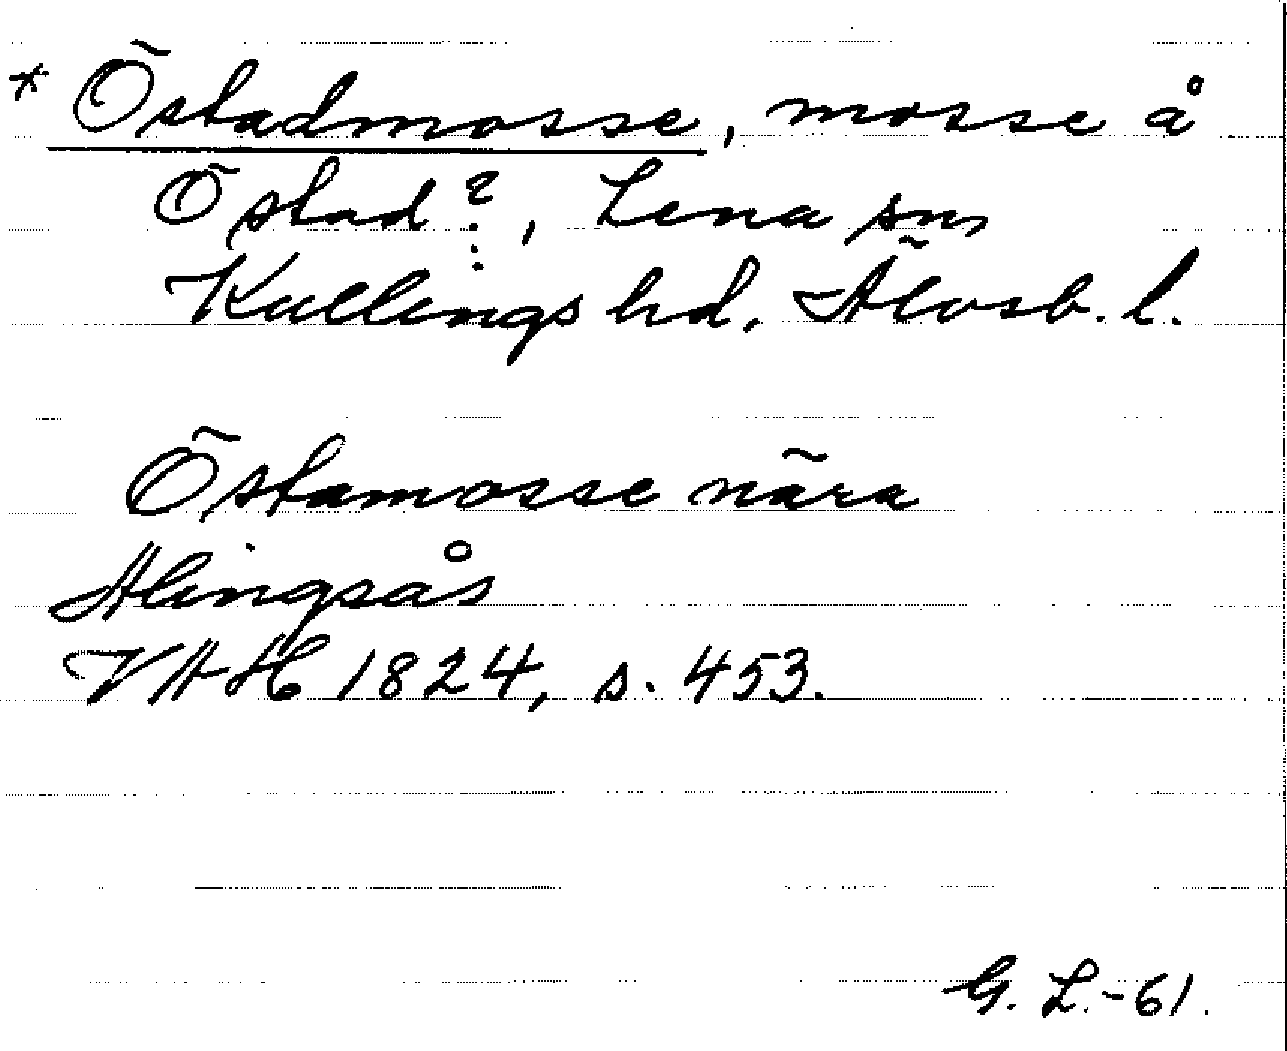 * Östadmosse, mosse å
Östad?, Lena sn,
Kullings hd, Älvsb. l.
Östamosse nära
Alingsås
VAH 1824, s. 453.
G. L. -61.